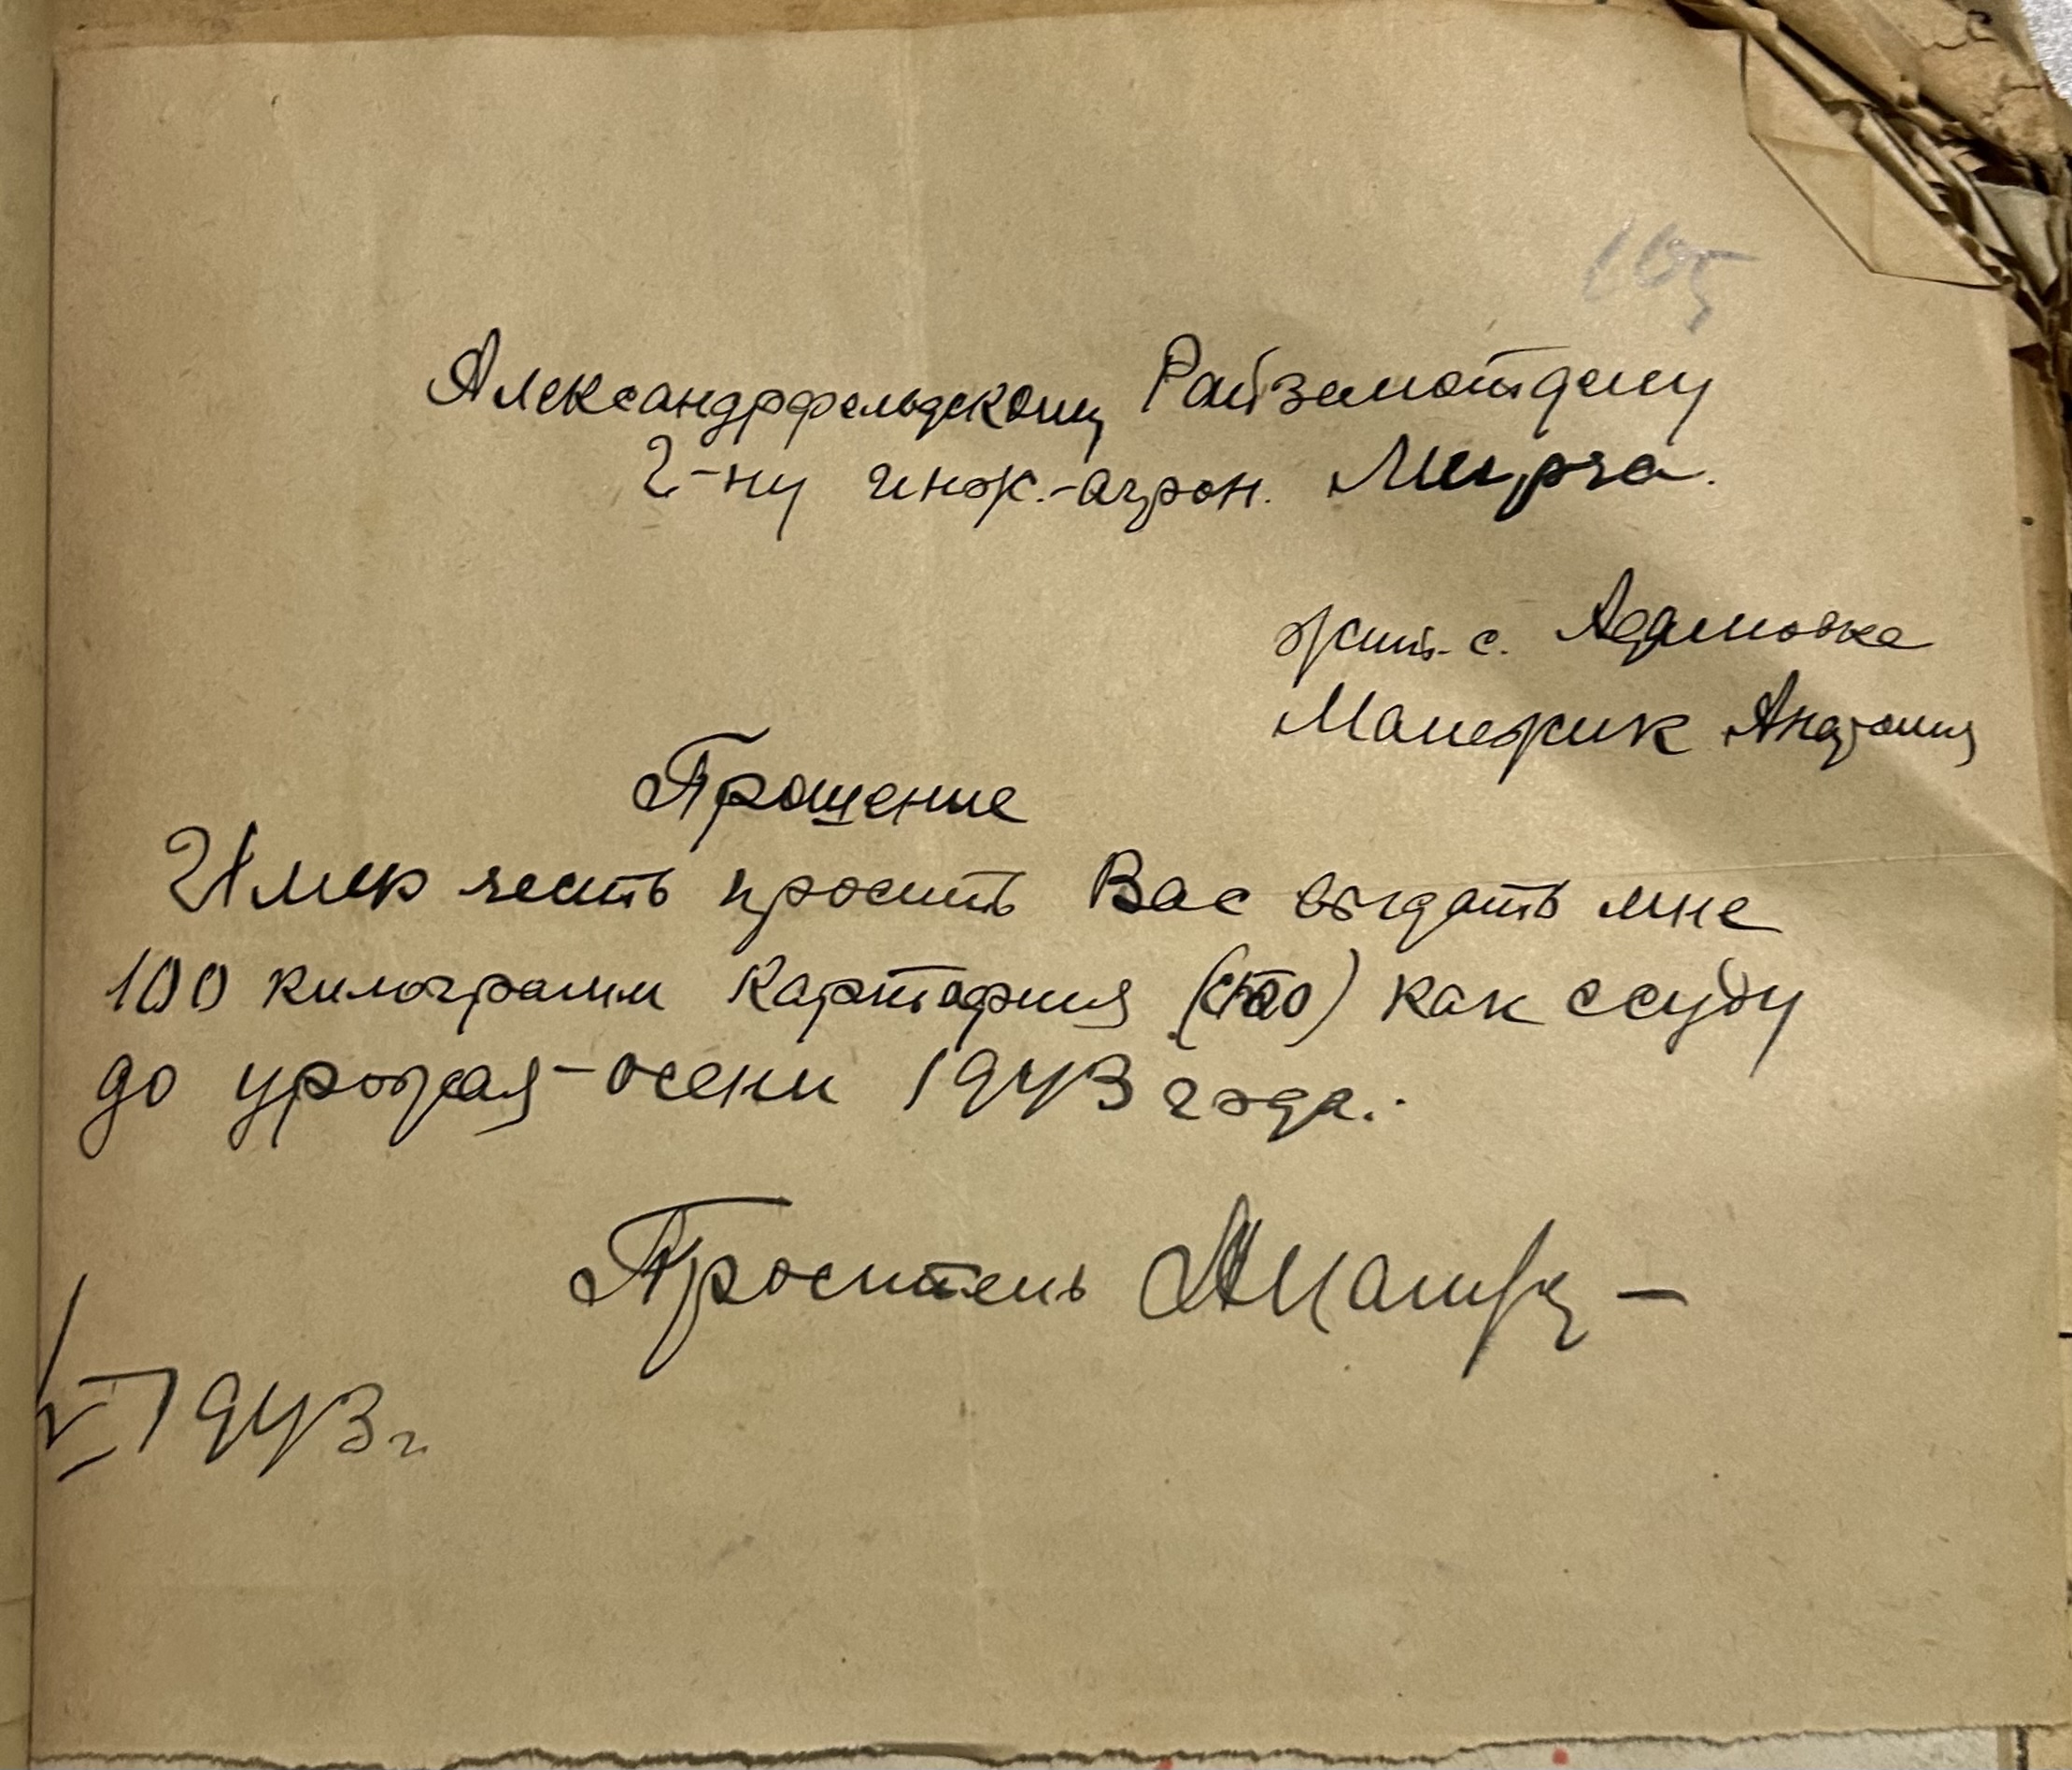 105
Александрфельдскому Райземотделу
Г-ну инж.-агрон. Мирча.
жит. с. Адамовка
Манежик Андрония
Прошение
Имею честь просить Вас выдать мне
100 килограмм картофиля (сто) как ссуду
до урожая-осени 1943 года.
Проситель
1943 г